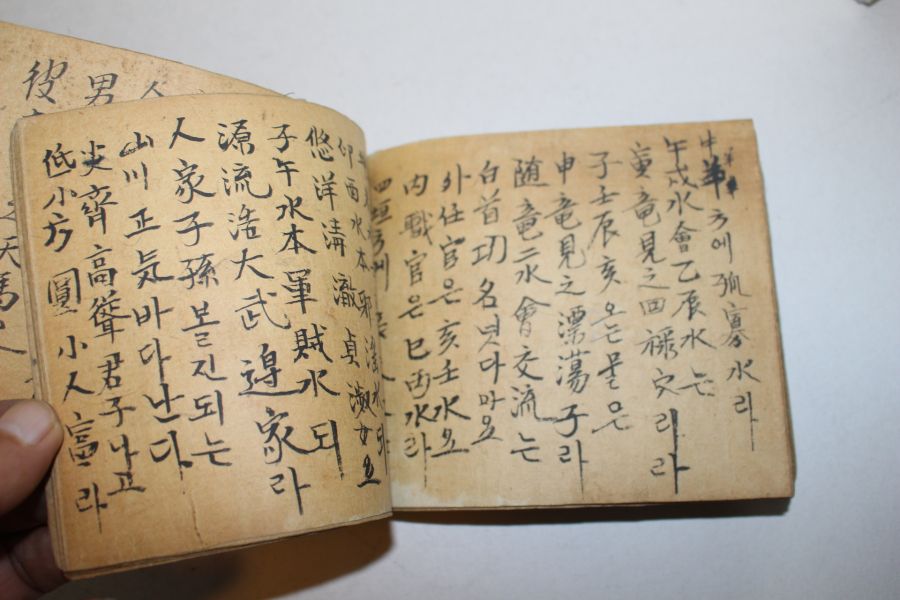 方에孤寡水라
午戌水會乙辰水는
寅竜見之回祿穴리라
子壬辰亥오는물은
申竜見之漂蕩子라
随竜二水會交流는
白首功名멋다마요
外任官은亥壬水요
内戰官은巳丙水라
四垣方에
卯酉水本邪淫水
悠洋淸澈貞淑女요
子午水本軍賊水되
源流浩大武家라
人家子孫볼진되는
山川正気바다난다
尖齊高聳君子나고
低小方圓小人富라
人
男
天馬